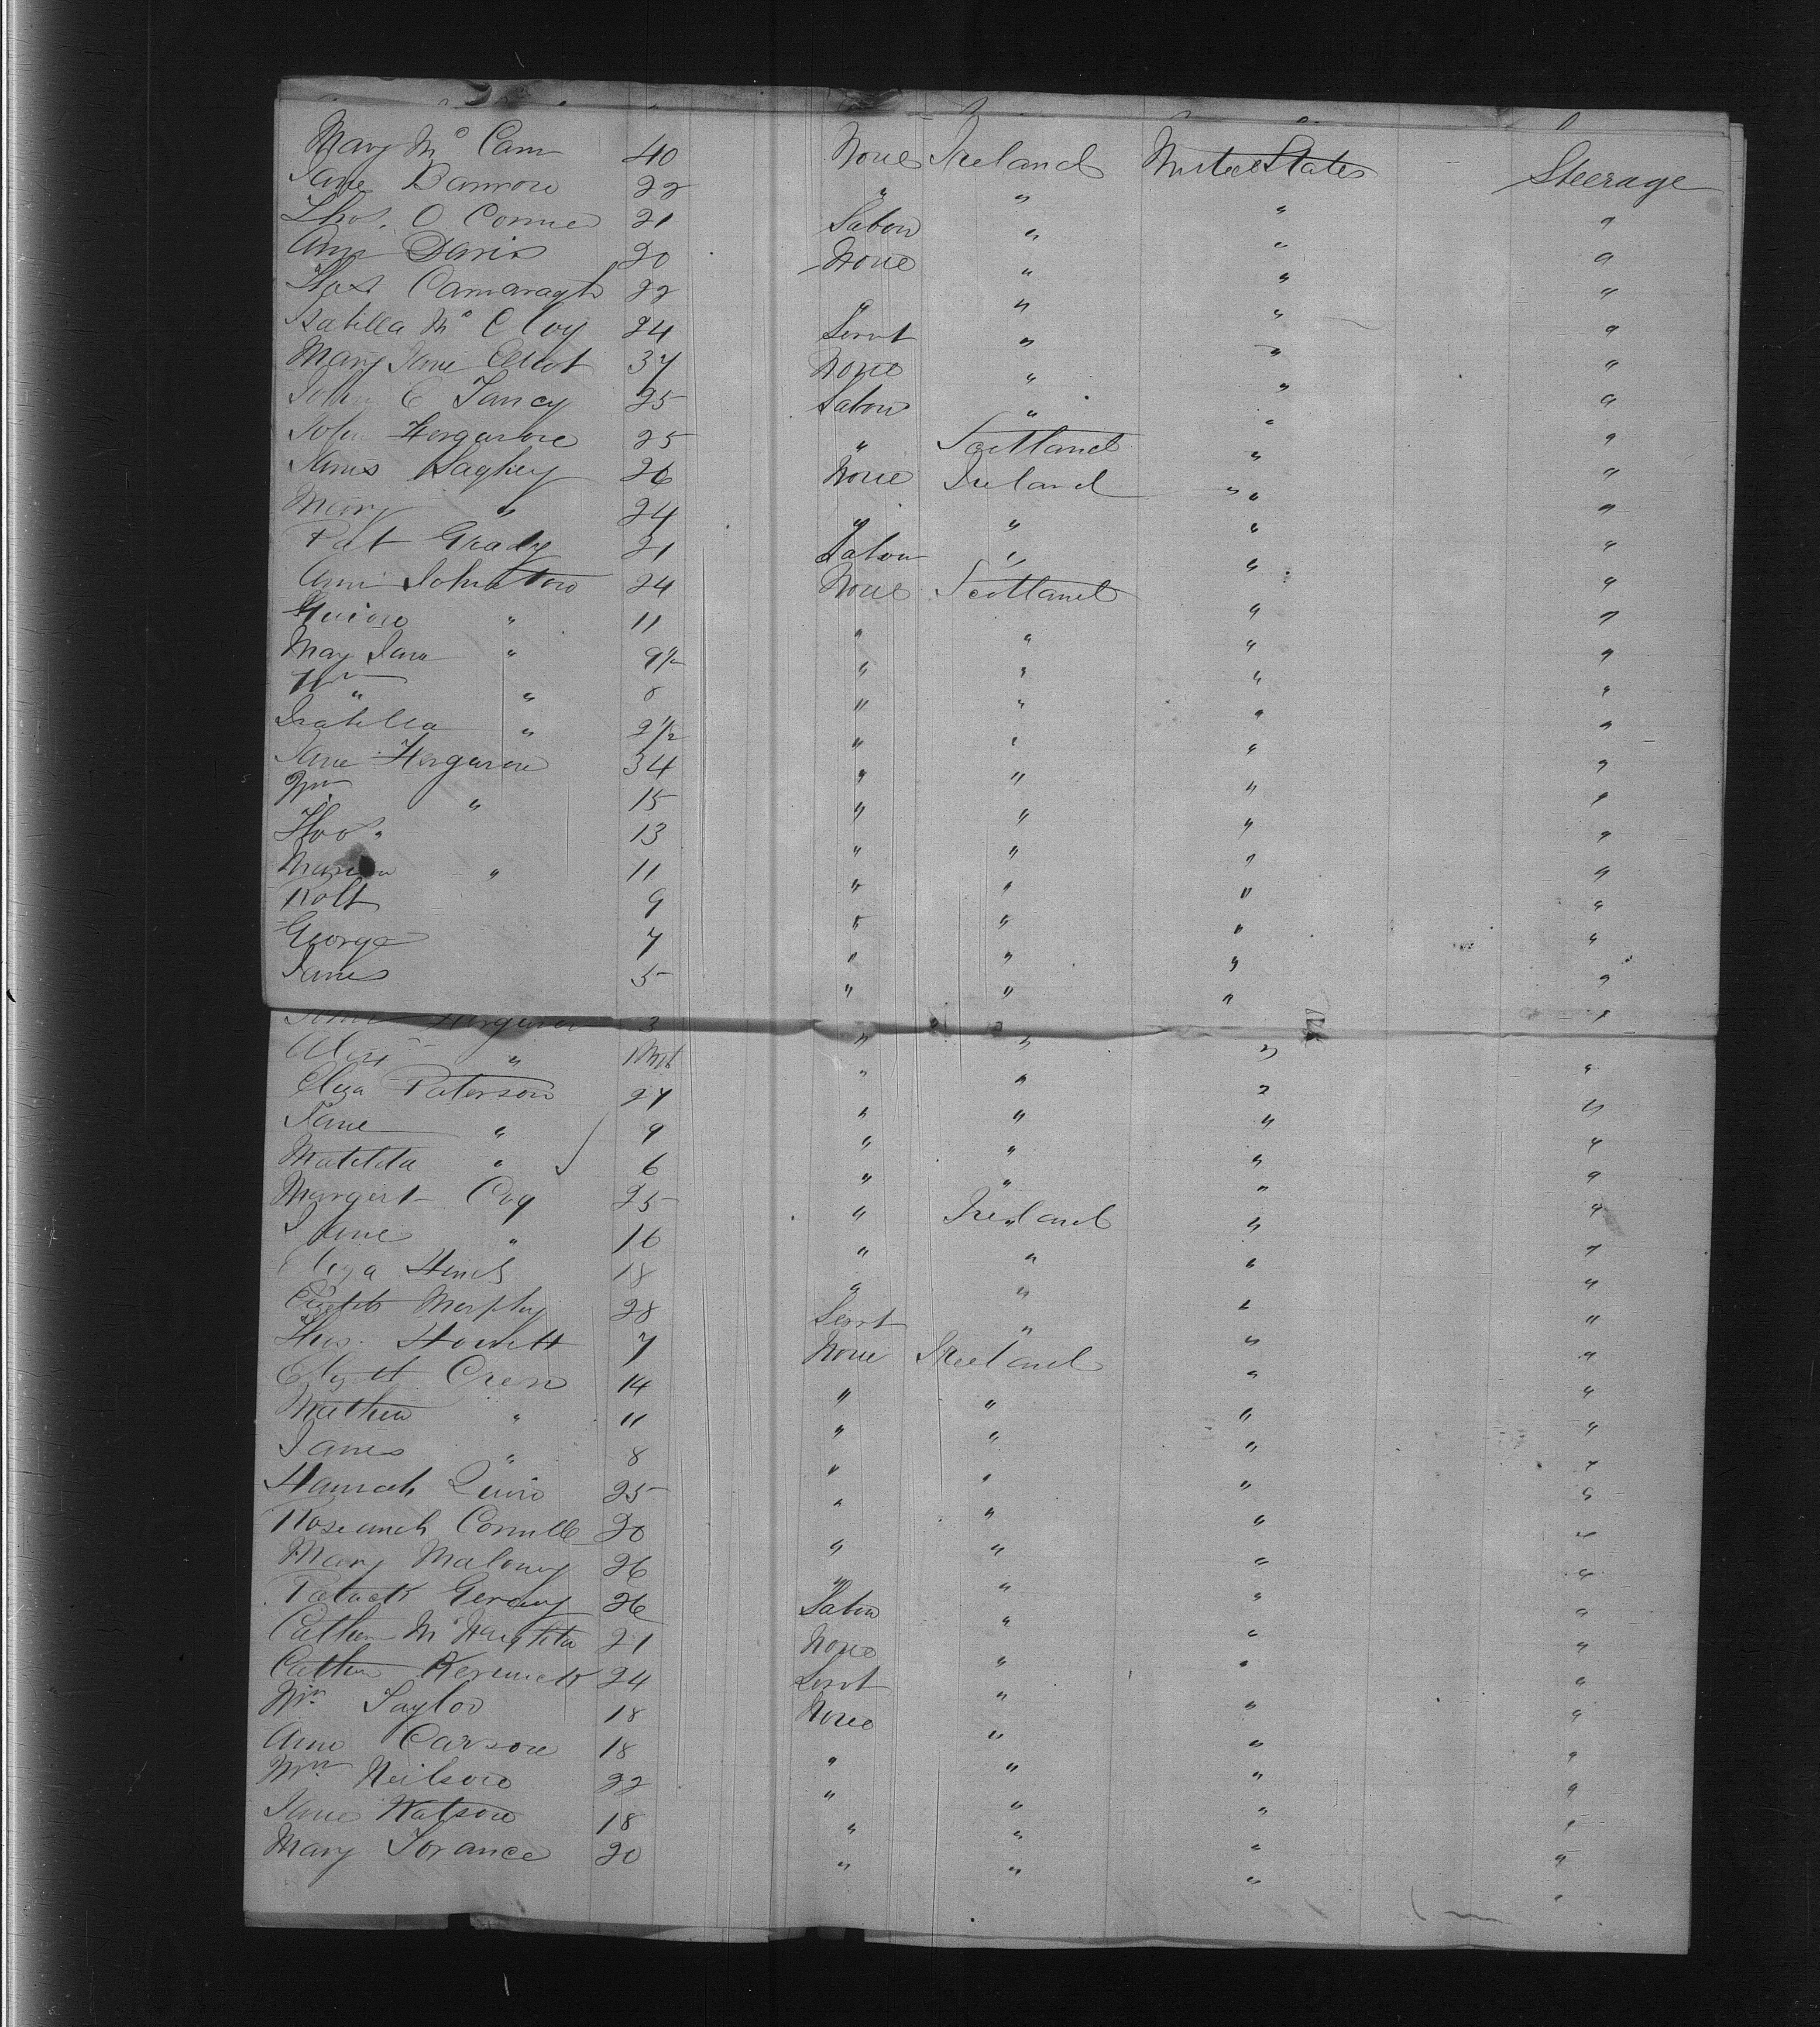 Mary Mc Cam 40 None Ireland United States Steerage
Jane Barrow 22 " " " "
Thos. O Conner 21 Labou " " "
Ann Davis 20 None " " "
Thos Camaragh 22 " " " "
Isabella Mc Cloy 24 Servt " " "
Mary Jane Elliot 37 None " " "
John C Tancy 25 Labou " " "
John Ferguson 25 " Scotland " "
James Haghey 26 None Ireland " "
Mary " 24 " " " "
Pat Grady 21 Labou " " "
Ann Johnston 24 None Scotland " "
" 11 " " " "
May Jane " 9 1/2 " " " "
Wm " 8 " " " "
Isabella " 2 1/2 " " " "
Jane Ferguson 34 " " " "
Wm " 15 " " " "
Thos " 13 " " " "
Marion " 11 " " " "
Robt 9 " " " "
George 7 " " " "
James 5 " " " "
John Ferguson 3 " " " "
Alex " " " " "
Eliza Paterson 27 " " " "
Jane " 9 " " " "
Matilda " 6 " " " "
Margert Coy 25 " Ireland " "
Jane " 16 " " " "
Eliza Hinds 18 " " " "
Murphy 28 Servt " " "
Thos. Howett 7 None Ireland " "
Elizbt Cren 14 " " " "
Mathew " 11 " " " "
James " 8 " " " "
Hannah Quin 25 " " " "
Roseanah Connell 20 " " " "
Mary Maloney 26 " " " "
Patrick Gerany 26 Labou " " "
Cathen Mc Naughton 21 None " " "
Cathen Kermick 24 Servt " " "
Wm Taylor 18 None " " "
Ann Carson 18 " " " "
Wm Neilson 22 " " " "
Jane Watson 18 " " " "
Mary Torance 20 " " " "